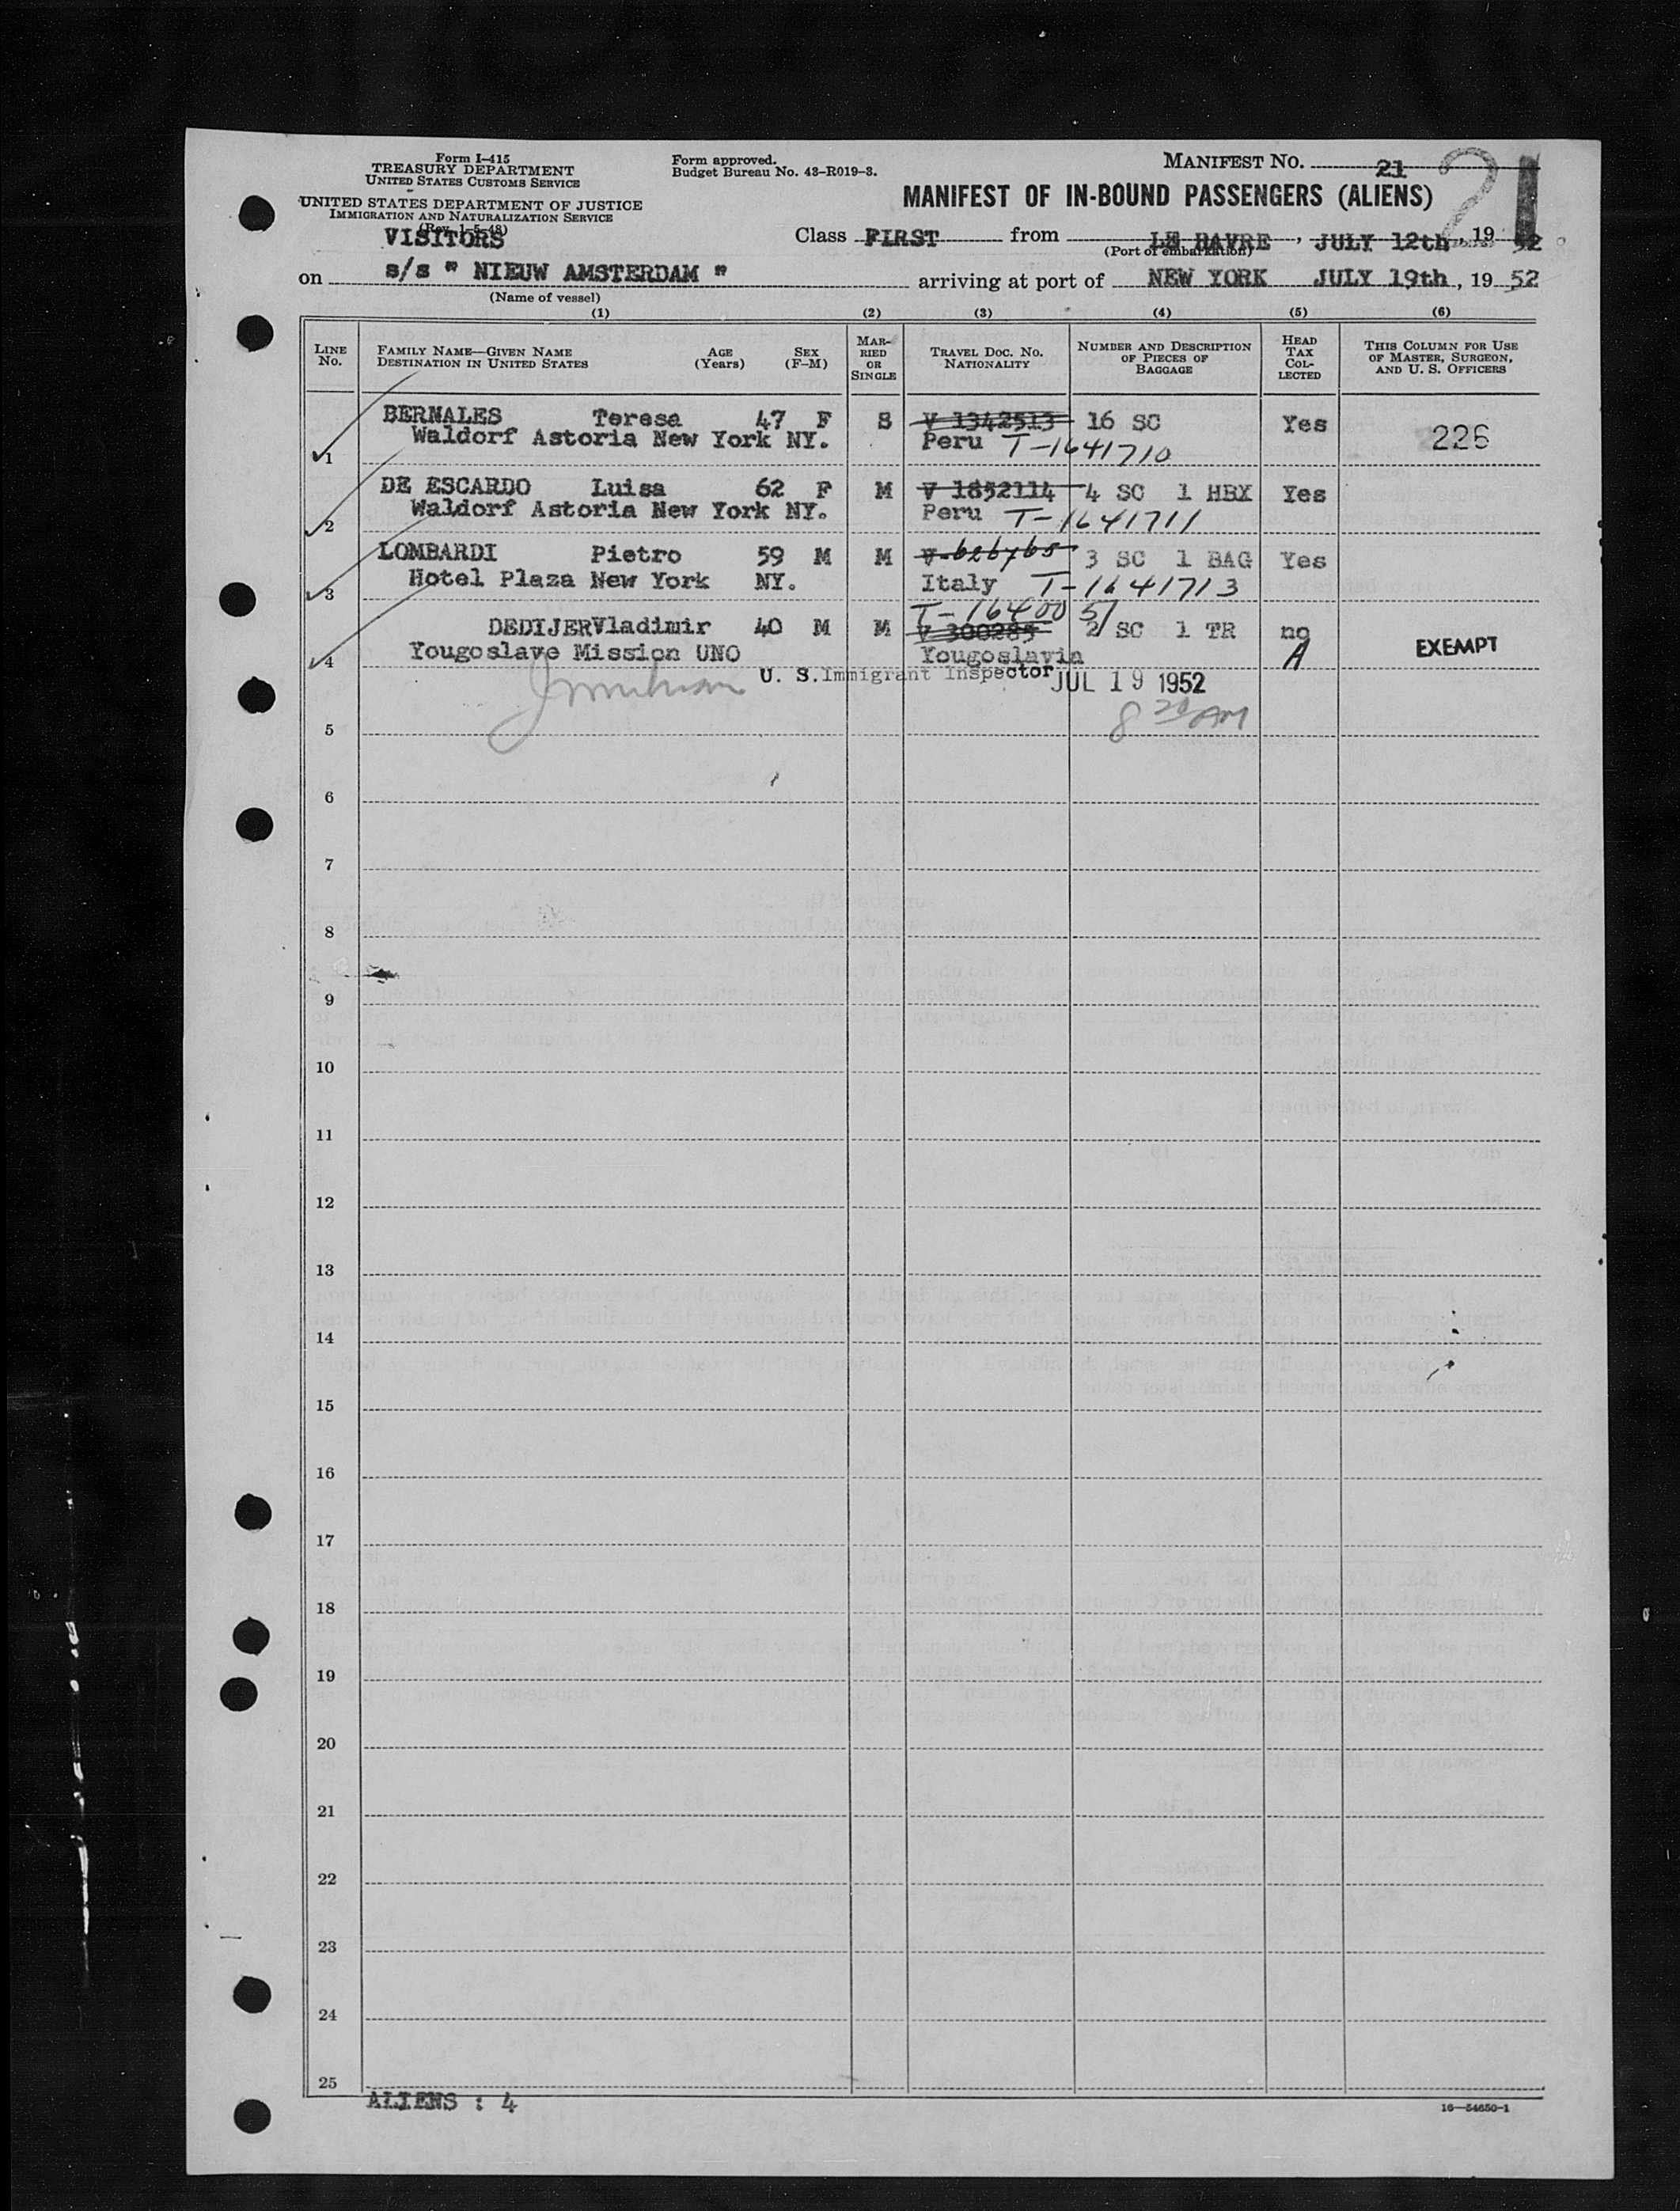 Form I-415
TREASURY DEPARTMENT
UNITED STATES CUSTOMS SERVICE
UNITED STATES DEPARTMENT OF JUSTICE
IMMIGRATION AND NATURALIZATION SERVICE
(Rev. 1-5-48)
VISITORS
Form approved.
Budget Bureau No. 43-R019-3.
MANIFEST No. 21
21
MANIFEST OF IN-BOUND PASSENGERS (ALIENS)
Class FIRST from LE HAVRE, JULY 12th, 19 52
(Port of embarkation)
on s/s " NIEUW AMSTERDAM " arriving at port of NEW YORK JULY 19th, 19 52
(Name of vessel)
(1) (2) (3) (4) (5) (6)
LINE No.
FAMILY NAME—GIVEN NAME
DESTINATION IN UNITED STATES
AGE (Years)
SEX (F-M)
MARRIED OR SINGLE
TRAVEL DOC. NO. NATIONALITY
NUMBER AND DESCRIPTION OF PIECES OF BAGGAGE
HEAD TAX COLLECTED
THIS COLUMN FOR USE OF MASTER, SURGEON, AND U. S. OFFICERS
BERNALES Teresa 47 F S V 1342513 16 SC Yes 226
1 Waldorf Astoria New York NY. Peru T-1641710
DE ESCARDO Luisa 62 F M V 1852114 4 SC 1 HBX Yes
2 Waldorf Astoria New York NY. Peru T-1641711
LOMBARDI Pietro 59 M M 3 SC 1 BAG Yes
3 Hotel Plaza New York NY. Italy T-1641713
T-1640051
DEDIJER Vladimir 40 M M V 300285 2 SC 1 TR no EXEMPT
4 Yougoslave Mission UNO Yougoslavia A
U. S. Immigrant Inspector JUL 19 1952
8 20 AM
5
6
7
8
9
10
11
12
13
14
15
16
17
18
19
20
21
22
23
24
25
ALIENS : 4
16—54650-1